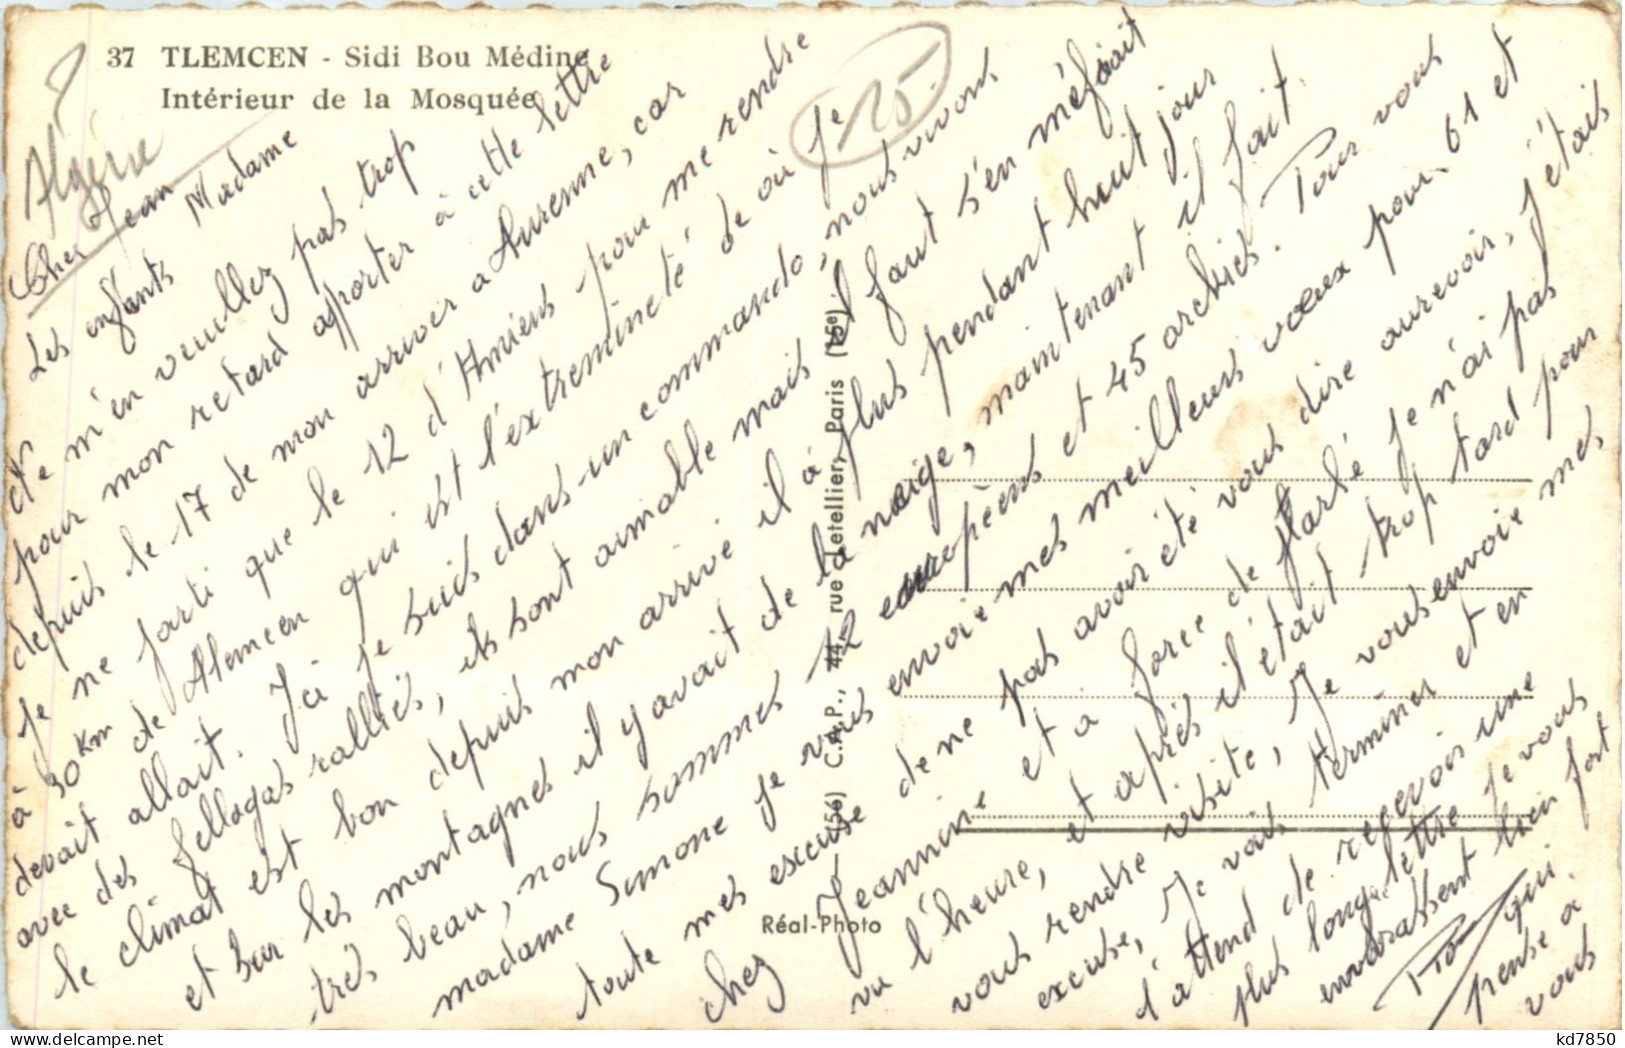 37 TLEMCEN - Sidi Bou Médine
Intérieur de la Mosquée
Algérie
15
Cher Jean Madame
Les enfants
Je m'en veuillez pas trop
pour mon retard apporter à cette lettre
depuis le 17 de mon arriver a Aurenne, car
je ne parti que le 12 d'Amiens pour me rendre
à 30 km de Tlemcen qui est l'extreminété de où je
devait allait. Ici je suis dans un commando, nous vivons
avec des fellagas ralliés, ils sont aimable mais il faut s'en méfiait
le climat est bon depuis mon arrivé il à plus pendant huit jour
et sur les montagnes il y avait de la neige, maintenant il fait
très beau, nous sommes 12 européens et 45 arabes. Pour vous
madame Simone je vous envoie mes meilleurs vœux pour 61 et
toute mes excuse de ne pas avoir été vous dire aurevoir, j'étais
chez Jeannine et à force de parlé je n'ai pas
vu l'heure, et après il était trop tard pour
vous rendre visite, Je vous envoie mes
excuse, Je vais terminer et en
l'attend de recevoir une
plus longue lettre je vous
embrassent bien fort
qui
pense a
vous
(556) C.A.P., 44, rue Letellier, Paris (15e)
Réal-Photo
kd7850